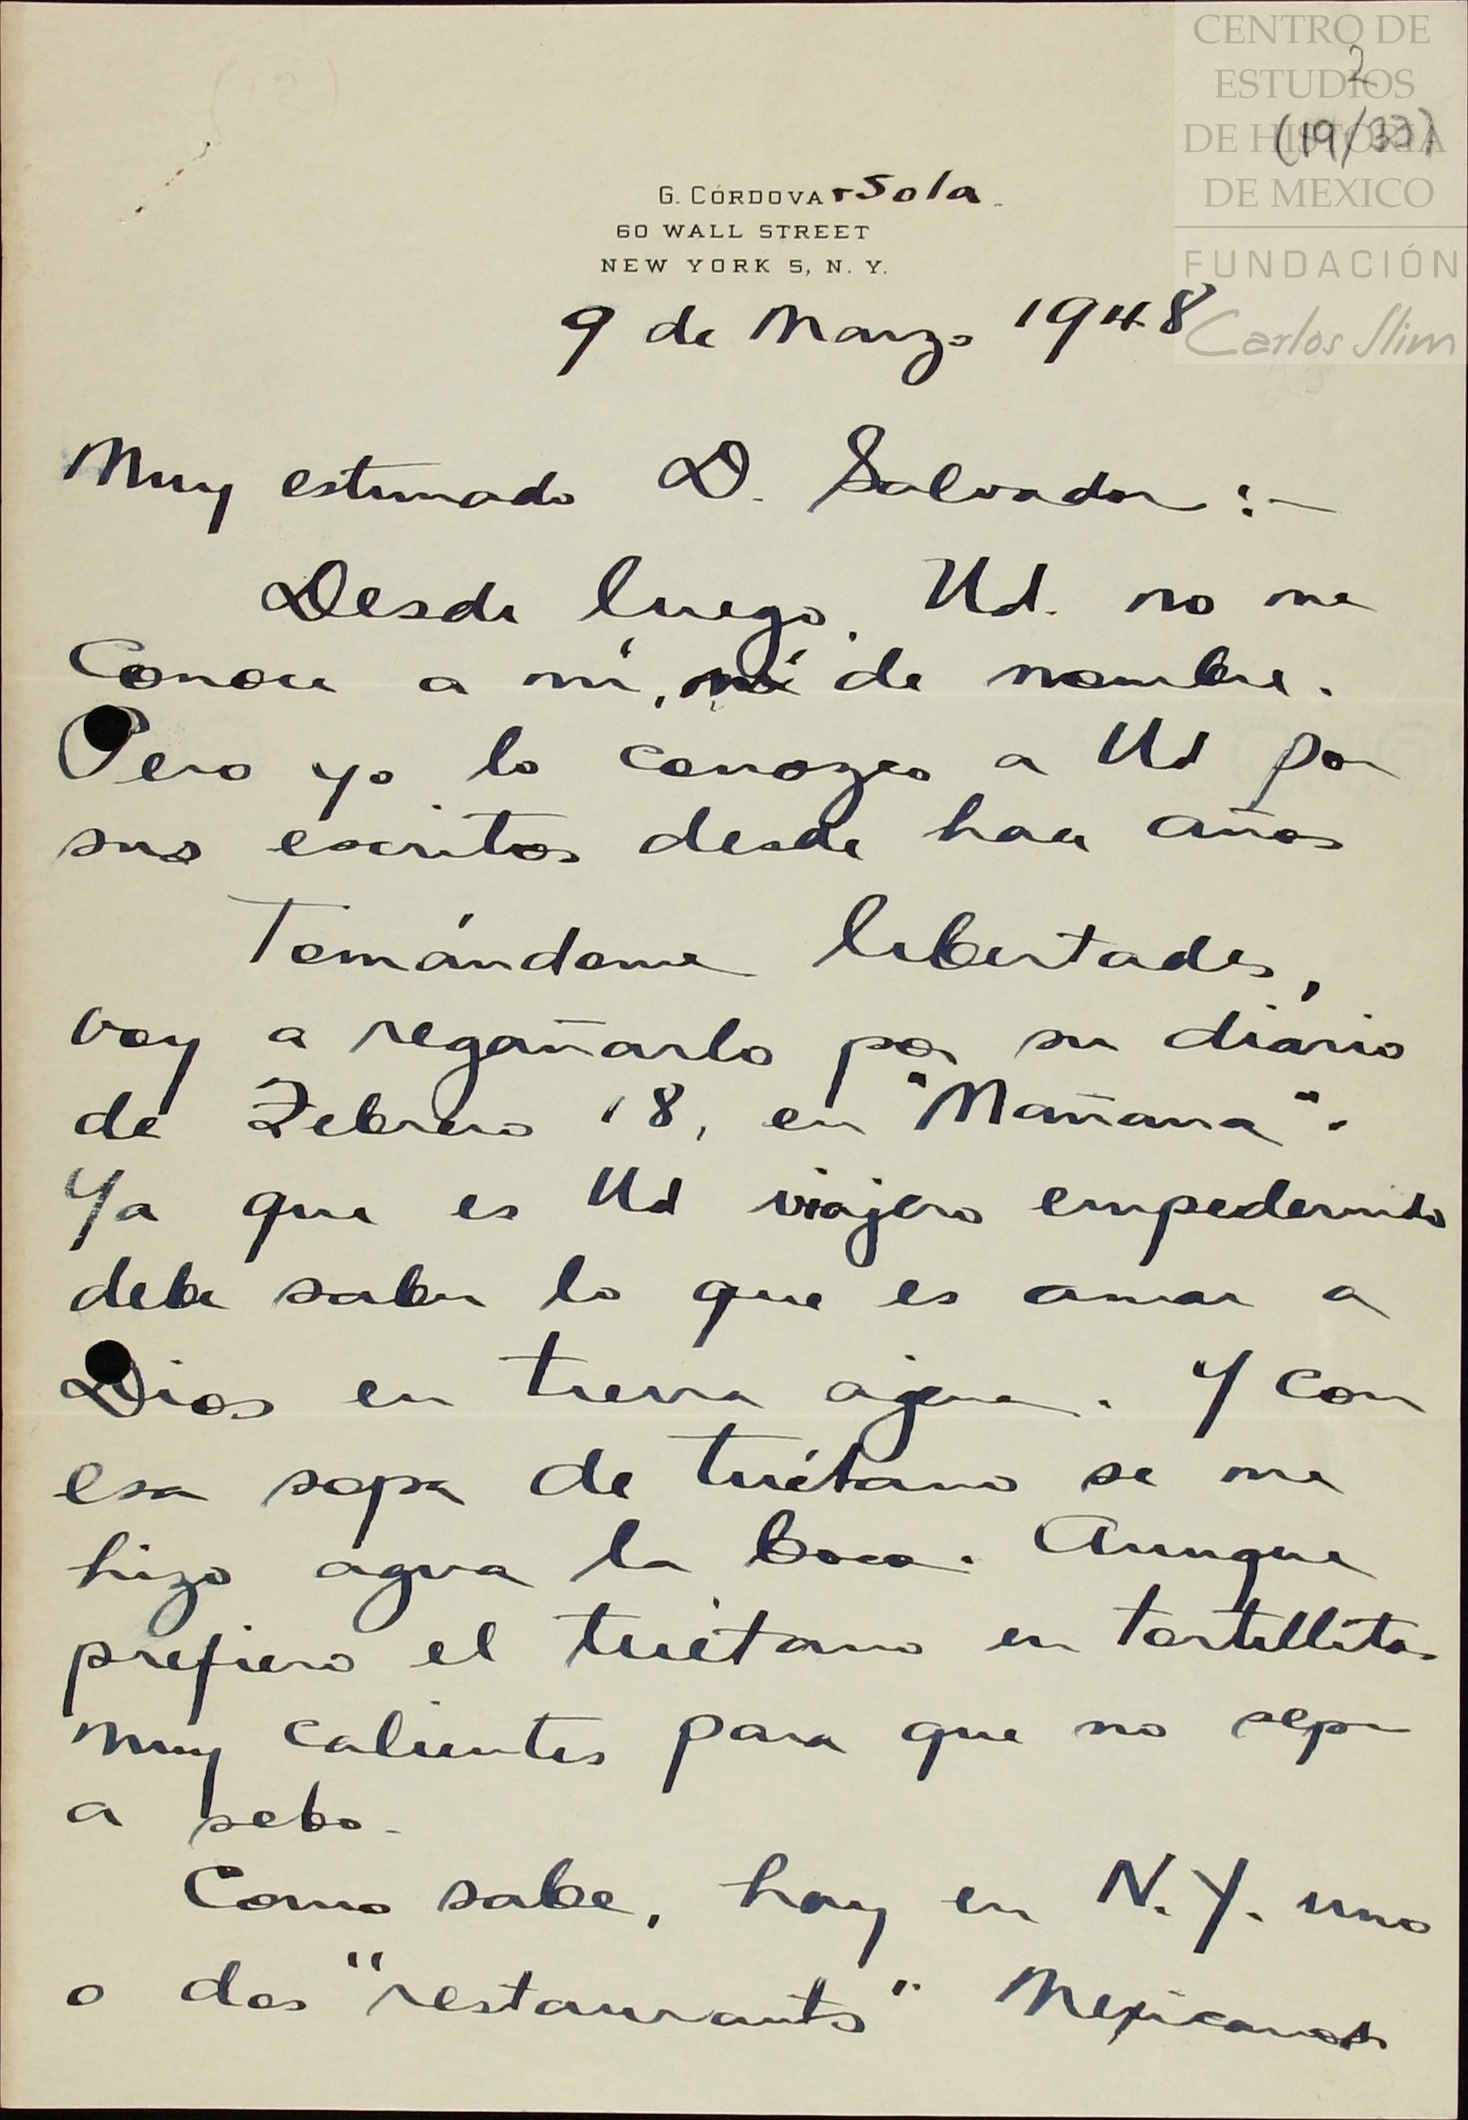 CENTRO DE
ESTUDIOS
DE HISTORIA
DE MEXICO
FUNDACIÓN
Carlos Slim
2
(19/33)
G. CÓRDOVA r Sola
60 WALL STREET
NEW YORK 5, N. Y.
9 de Marzo 1948
Muy estimado D. Salvador:-
Desde luego, Ud. no me
conoce a mí, ni de nombre.
Pero yo lo conozco a Ud por
sus escritos desde hace años
Tomándome libertades,
voy a regañarlo por su diario
de Febrero 18, en "Mañana".
Ya que es Ud viajero empedernido
debe saber lo que es amar a
Dios en tierra ajena. Y con
esa sopa de tuétano se me
hizo agua la boca. Aunque
prefiero el tuétano en tortillitas
muy calientes para que no sepa
a sebo.
Como sabe, hay en N.Y. uno
o dos "restaurants" Mexicanos